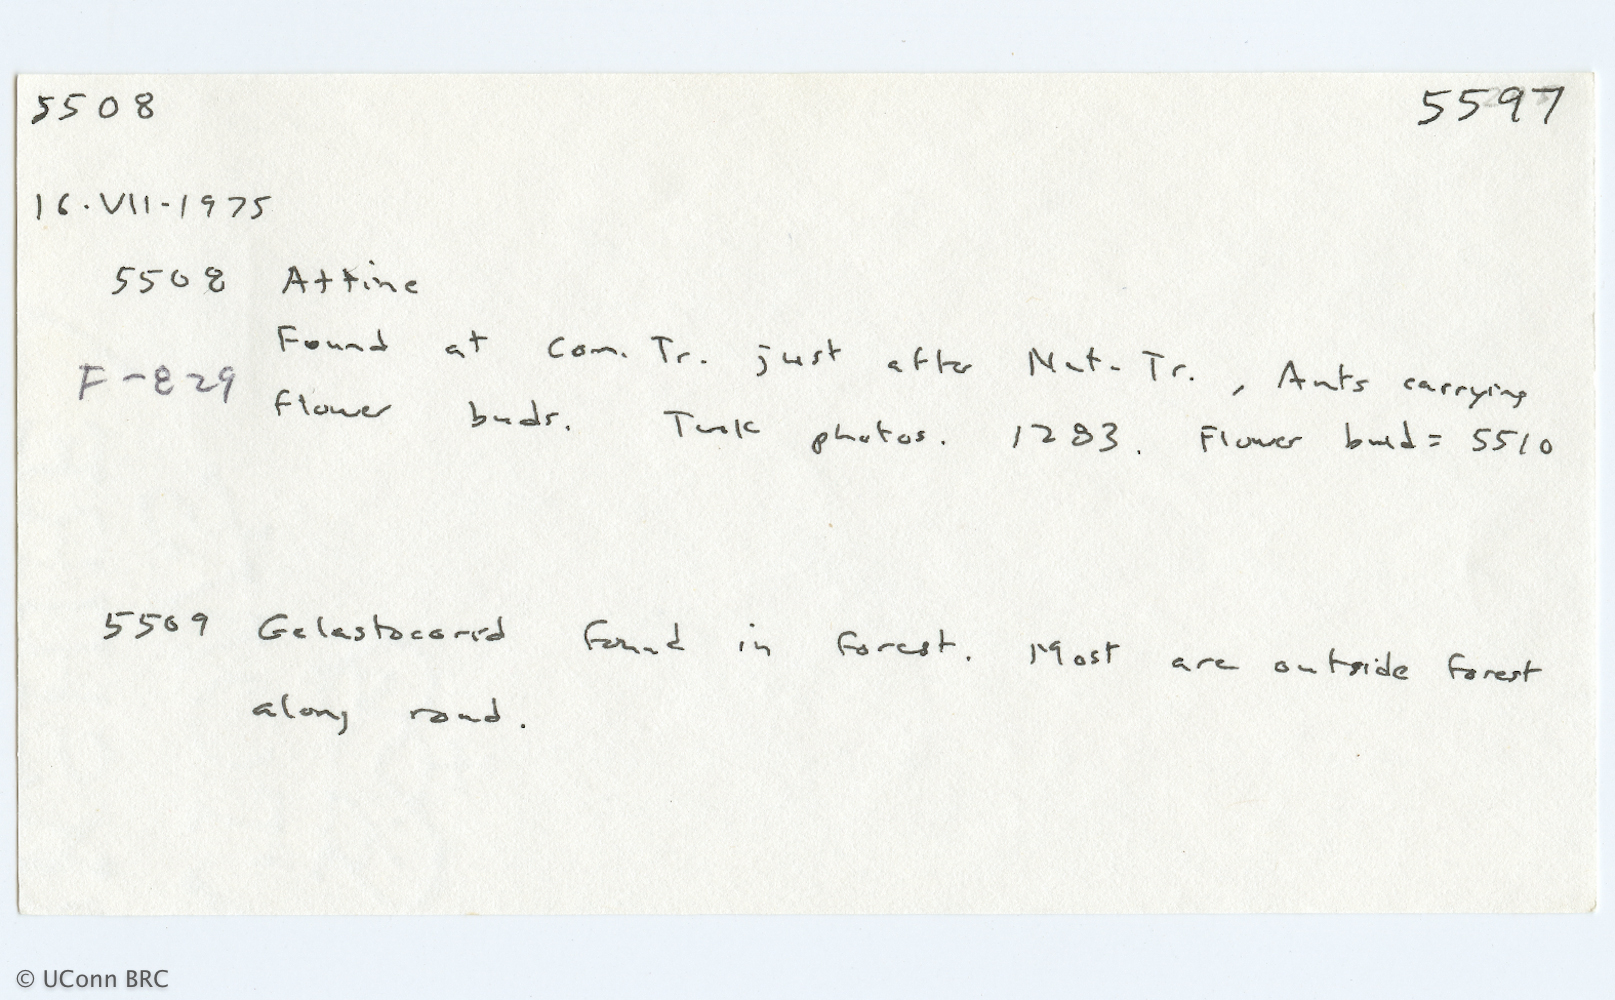 5508 5597
16.VII-1975
5508 Attine
Found at Com. Tr. just after Nat. Tr., Ants carrying
F-829
flower buds. Took photos. 1283. Flower bud = 5510
5509 Gelastocorid found in forest. Most are outside forest
along road.
© UConn BRC